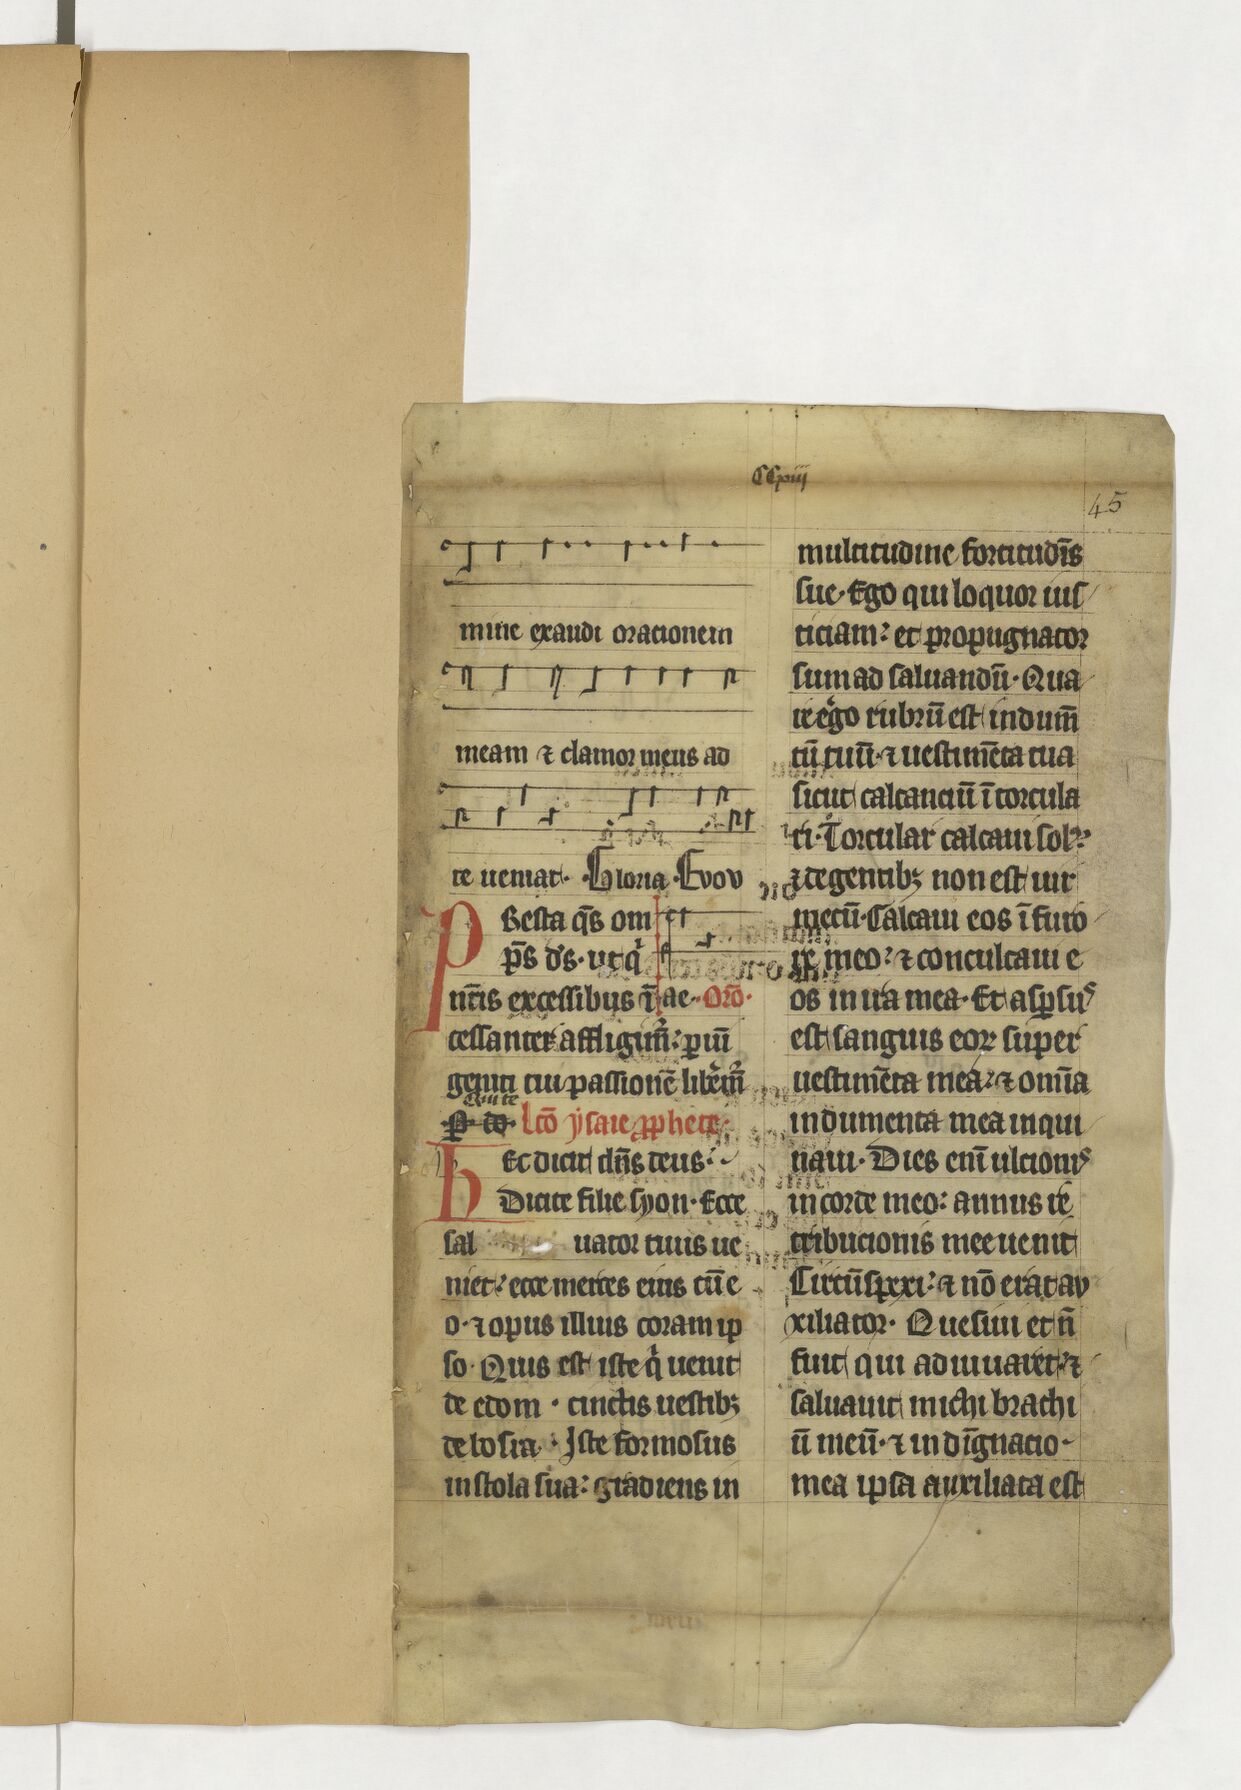 CCxiij
45
mine exaudi orationem
meam ⁊ clamor meus ad
te ueniat. Gloria. Evov
PResta q̄s om
ps̄ d's. ut q̇
nr̄is excessibus ī ae. Orō.
cessanter affligim̄: p uni
geniti tui passionē liberem̄
Quīte
lcō ysaie p̄phete.
HEc dicit dn̄s deus:
Dicite filie syon. Ecce
sal uator tuus ue
niet: ecce merces eius cū e
o. ⁊ opus illius coram ip
so. Quis est iste q̇ uenit
de edom. tinctis uestibꝫ
de bosra. Iste formosus
in stola sua: gradiens in
multitudine fortitudīs
sue. Ego qui loquor ius
ticiam: et propugnator
sum ad saluandū. Qua
re ergo rubrū est indum̄
tū tuū. ⁊ uestimēta tua
sicut calcanciū ī torcula
ri. Torcular calcaui sol̄:
⁊ de gentibꝫ non est uir
mecū. Calcaui eos ī furo
re meo: ⁊ conculcaui e
os in ira mea. Et asꝑsus
est sanguis eoꝝ super
uestimēta mea: ⁊ omīa
indumenta mea inqui
naui. Dies enī ulcionis
in corde meo: annus re
tribucionis mee uenit
Circūspexi: ⁊ nō erat au
xiliator. Quesiui et n̄
fuit qui adiuuaret: ⁊
saluauit michi brachi
ū meū. ⁊ indīgnacio
mea ipsa auxiliata est